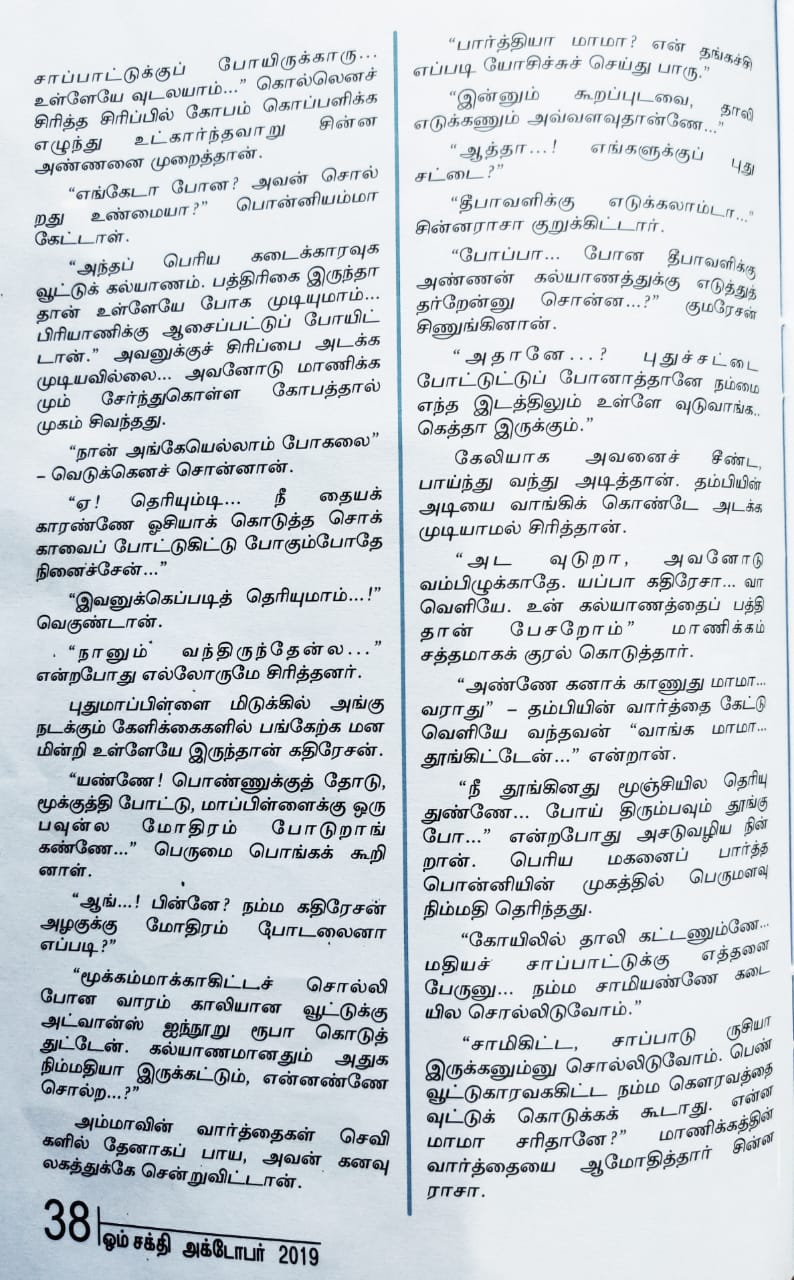 சாப்பாட்டுக்குப் போயிருக்காரு...
உள்ளேயே வுடலயாம்...” கொல்லெனச்
சிரித்த சிரிப்பில் கோபம் கொப்பளிக்க
எழுந்து உட்கார்ந்தவாறு சின்ன
அண்ணனை முறைத்தான்.
“எங்கேடா போன? அவன் சொல்
றது உண்மையா?” பொன்னியம்மா
கேட்டாள்.
“அந்தப் பெரிய கடைக்காரவுக
வூட்டுக் கல்யாணம். பத்திரிகை இருந்தா
தான் உள்ளேயே போக முடியுமாம்...
பிரியாணிக்கு ஆசைப்பட்டுப் போயிட்
டான்.” அவனுக்குச் சிரிப்பை அடக்க
முடியவில்லை... அவனோடு மாணிக்க
மும் சேர்ந்துகொள்ள கோபத்தால்
முகம் சிவந்தது.
“நான் அங்கேயெல்லாம் போகலை”
– வெடுக்கெனச் சொன்னான்.
“ஏ! தெரியும்டி... நீ தையக்
காரண்ணே ஓசியாக் கொடுத்த சொக்
காவைப் போட்டுகிட்டு போகும்போதே
நினைச்சேன்...”
“இவனுக்கெப்படித் தெரியுமாம்...!”
வெகுண்டான்.
“நானும் வந்திருந்தேன்ல...”
என்றபோது எல்லோருமே சிரித்தனர்.
புதுமாப்பிள்ளை மிடுக்கில் அங்கு
நடக்கும் கேளிக்கைகளில் பங்கேற்க மன
மின்றி உள்ளேயே இருந்தான் கதிரேசன்.
“யண்ணே! பொண்ணுக்குத் தோடு,
மூக்குத்தி போட்டு, மாப்பிள்ளைக்கு ஒரு
பவுன்ல மோதிரம் போடுறாங்
கண்ணே...” பெருமை பொங்கக் கூறி
னாள்.
“ஆங்...! பின்னே? நம்ம கதிரேசன்
அழகுக்கு மோதிரம் போடலைனா
எப்படி?”
“மூக்கம்மாக்காகிட்டச் சொல்லி
போன வாரம் காலியான வூட்டுக்கு
அட்வான்ஸ் ஐந்நூறு ரூபா கொடுத்
துட்டேன். கல்யாணமானதும் அதுக
நிம்மதியா இருக்கட்டும், என்னண்ணே
சொல்ற...?”
அம்மாவின் வார்த்தைகள் செவி
களில் தேனாகப் பாய, அவன் கனவு
லகத்துக்கே சென்றுவிட்டான்.
“பார்த்தியா மாமா? என் தங்கச்சி
எப்படி யோசிச்சுச் செய்து பாரு.”
“இன்னும் கூறப்புடவை, தாலி
எடுக்கணும் அவ்வளவுதான்ணே...”
“ஆத்தா...! எங்களுக்குப் புது
சட்டை?”
“தீபாவளிக்கு எடுக்கலாம்டா...”
சின்னராசா குறுக்கிட்டார்.
“போப்பா... போன தீபாவளிக்கு
அண்ணன் கல்யாணத்துக்கு எடுத்துத்
தர்றேன்னு சொன்ன...?” குமரேசன்
சிணுங்கினான்.
“அதானே...? புதுச்சட்டை
போட்டுட்டுப் போனாத்தானே நம்மை
எந்த இடத்திலும் உள்ளே வுடுவாங்க..
கெத்தா இருக்கும்.”
கேலியாக அவனைச் சீண்ட,
பாய்ந்து வந்து அடித்தான். தம்பியின்
அடியை வாங்கிக் கொண்டே அடக்க
முடியாமல் சிரித்தான்.
“அட வுடுறா, அவனோடு
வம்பிழுக்காதே. யப்பா கதிரேசா... வா
வெளியே. உன் கல்யாணத்தைப் பத்தி
தான் பேசறோம்” மாணிக்கம்
சத்தமாகக் குரல் கொடுத்தார்.
“அண்ணே கனாக் காணுது மாமா...
வராது” – தம்பியின் வார்த்தை கேட்டு
வெளியே வந்தவன் “வாங்க மாமா...
தூங்கிட்டேன்...” என்றான்.
“நீ தூங்கினது மூஞ்சியில தெரியு
துண்ணே... போய் திரும்பவும் தூங்கு
போ...” என்றபோது அசடுவழிய நின்
றான். பெரிய மகனைப் பார்த்த
பொன்னியின் முகத்தில் பெருமளவு
நிம்மதி தெரிந்தது.
“கோயிலில் தாலி கட்டணும்ணே...
மதியச் சாப்பாட்டுக்கு எத்தனை
பேருனு... நம்ம சாமியண்ணே கடை
யில சொல்லிடுவோம்.”
“சாமிகிட்ட, சாப்பாடு ருசியா
இருக்கனும்னு சொல்லிடுவோம். பெண்
வூட்டுகாரவககிட்ட நம்ம கௌரவத்தை
வுட்டுக் கொடுக்கக் கூடாது. என்ன
மாமா சரிதானே?” மாணிக்கத்தின்
வார்த்தையை ஆமோதித்தார் சின்ன
ராசா.
38 ஓம் சக்தி அக்டோபர் 2019